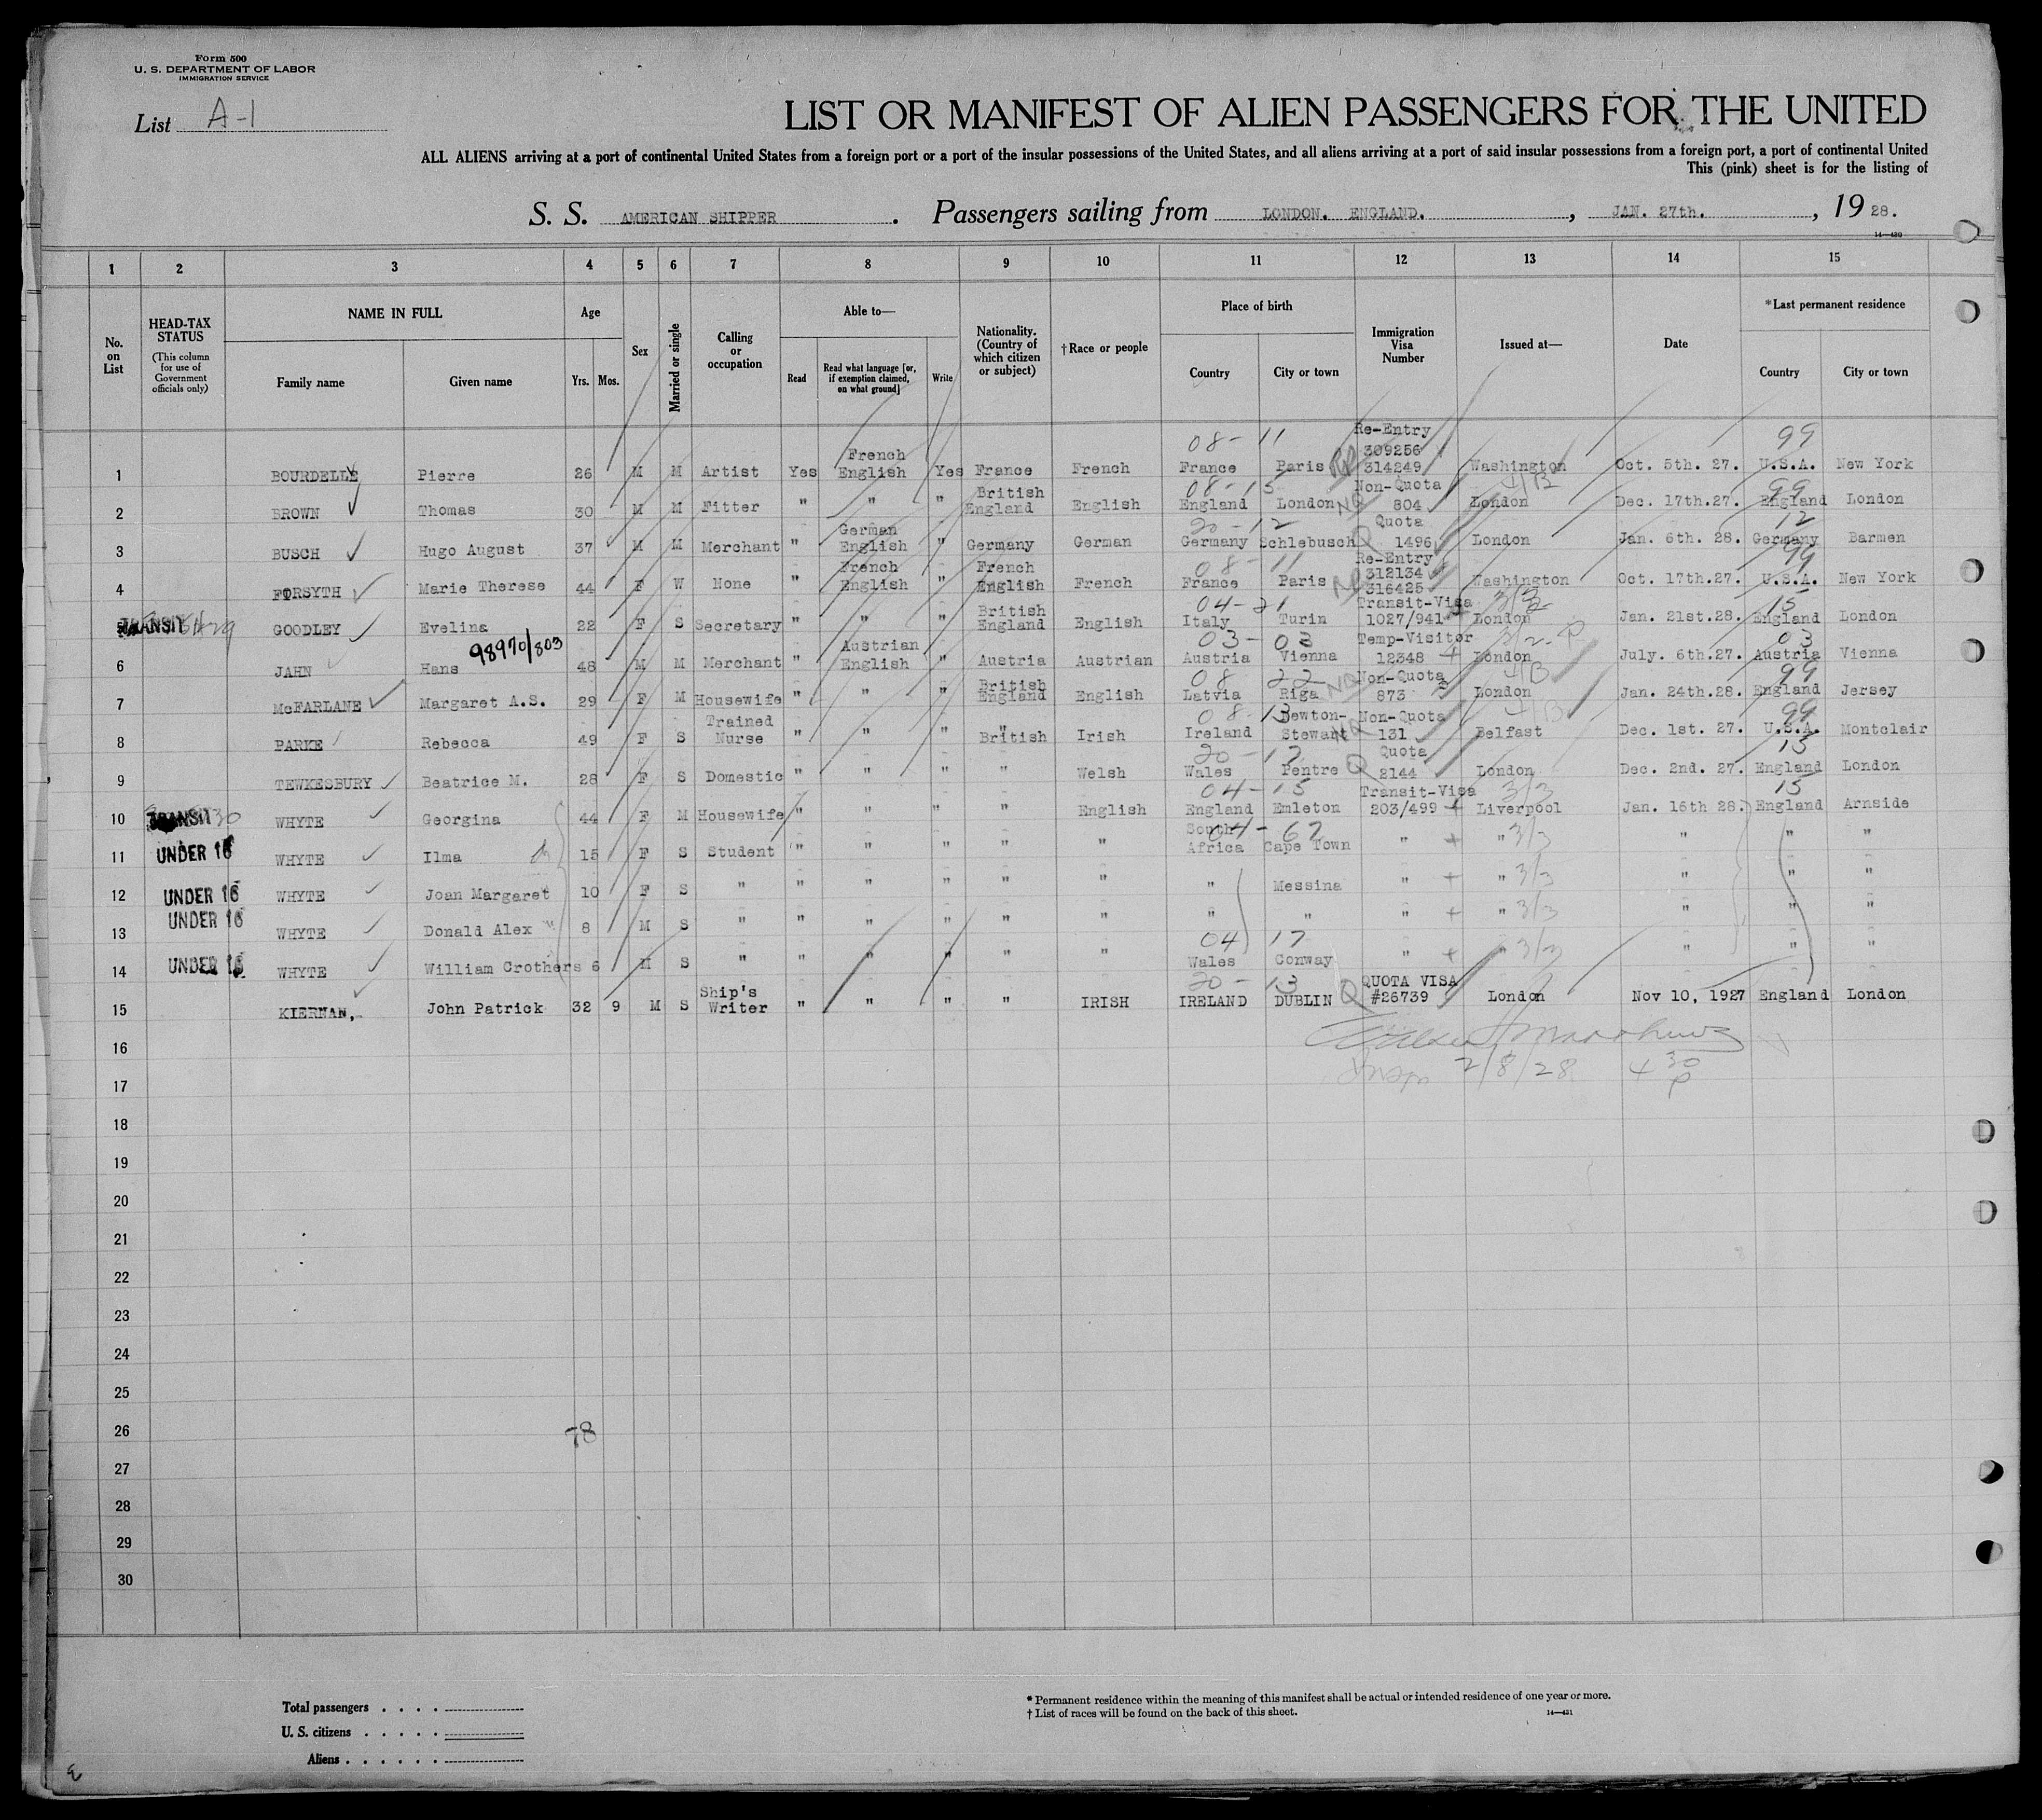 Form 500
U. S. DEPARTMENT OF LABOR
IMMIGRATION SERVICE
List A-1
LIST OR MANIFEST OF ALIEN PASSENGERS FOR THE UNITED
ALL ALIENS arriving at a port of continental United States from a foreign port or a port of the insular possessions of the United States, and all aliens arriving at a port of said insular possessions from a foreign port, a port of continental United
This (pink) sheet is for the listing of
S. S. AMERICAN SHIPPER . Passengers sailing from LONDON. ENGLAND. , JAN. 27th. , 19 28.
14—430
1 2 3 4 5 6 7 8 9 10 11 12 13 14 15
No. on List
HEAD-TAX STATUS
(This column for use of Government officials only)
NAME IN FULL
Family name Given name
Age
Yrs. Mos.
Sex
Married or single
Calling or occupation
Able to—
Read
Read what language [or, if exemption claimed, on what ground]
Write
Nationality. (Country of which citizen or subject)
†Race or people
Place of birth
Country City or town
Immigration Visa Number
Issued at—
Date
*Last permanent residence
Country City or town
1 BOURDELLE Pierre 26 M M Artist Yes French English Yes France French 08-11 France Paris Re-Entry 309256 314249 Washington Oct. 5th. 27. 99 U.S.A. New York
2 BROWN Thomas 30 M M Fitter " " " British England English 08-15 England London NQ Non-Quota 804 4/B London Dec. 17th.27. 99 England London
3 BUSCH Hugo August 37 M M Merchant " German English " Germany German 20-12 Germany Schlebusch Q Quota 1496 London Jan. 6th. 28. 12 Germany Barmen
4 FORSYTH Marie Therese 44 F W None " French English " French English French 08-11 France Paris Re-Entry 312134 316425 Washington Oct. 17th.27. 99 U.S.A. New York
5 TRANSIT GOODLEY Evelina 22 F S Secretary " " " British England English 04-21 Italy Turin Transit-Visa 1027/941 London Jan. 21st.28. 15 England London
6 JAHN Hans 98970/803 48 M M Merchant " Austrian English " Austria Austrian 03-03 Austria Vienna Temp-Visitor 12348 London July. 6th.27. 03 Austria Vienna
7 McFARLANE Margaret A.S. 29 F M Housewife " " " British England English 08 22 Latvia Riga NQ Non-Quota 873 4/B London Jan. 24th.28. 99 England Jersey
8 PARKE Rebecca 49 F S Trained Nurse " " " " British Irish 08-13 Ireland Newton-Stewart NQ Non-Quota 131 4/B Belfast Dec. 1st. 27. 99 U.S.A. Montclair
9 TEWKESBURY Beatrice M. 28 F S Domestic " " " " Welsh 20-17 Wales Pentre Q Quota 2144 London Dec. 2nd. 27. 15 England London
10 TRANSIT 30 WHYTE Georgina 44 F M Housewife " " " " English 04-15 England Emleton Transit-Visa 203/499 3/3 Liverpool Jan. 16th 28. 15 England Arnside
11 UNDER 16 WHYTE Ilma 15 F S Student " " " " " 04-67 South Africa Cape Town " " 3/3 " " "
12 UNDER 16 WHYTE Joan Margaret 10 F S " " " " " " " Messina " " 3/3 " " "
13 UNDER 16 WHYTE Donald Alex 8 M S " " " " " " " " " " 3/3 " " "
14 UNDER 16 WHYTE William Crothers 6 M S " " " " " " 04 17 Wales Conway " " 3/3 " " "
15 KIERNAN, John Patrick 32 9 M S Ship's Writer " " " " IRISH 20-13 IRELAND DUBLIN Q QUOTA VISA #26739 London Nov 10, 1927 England London
16
Insp 2/8/28 4 30 P
17
18
19
20
21
22
23
24
25
26 78
27
28
29
30
Total passengers
U. S. citizens
Aliens
* Permanent residence within the meaning of this manifest shall be actual or intended residence of one year or more.
† List of races will be found on the back of this sheet.
14—431